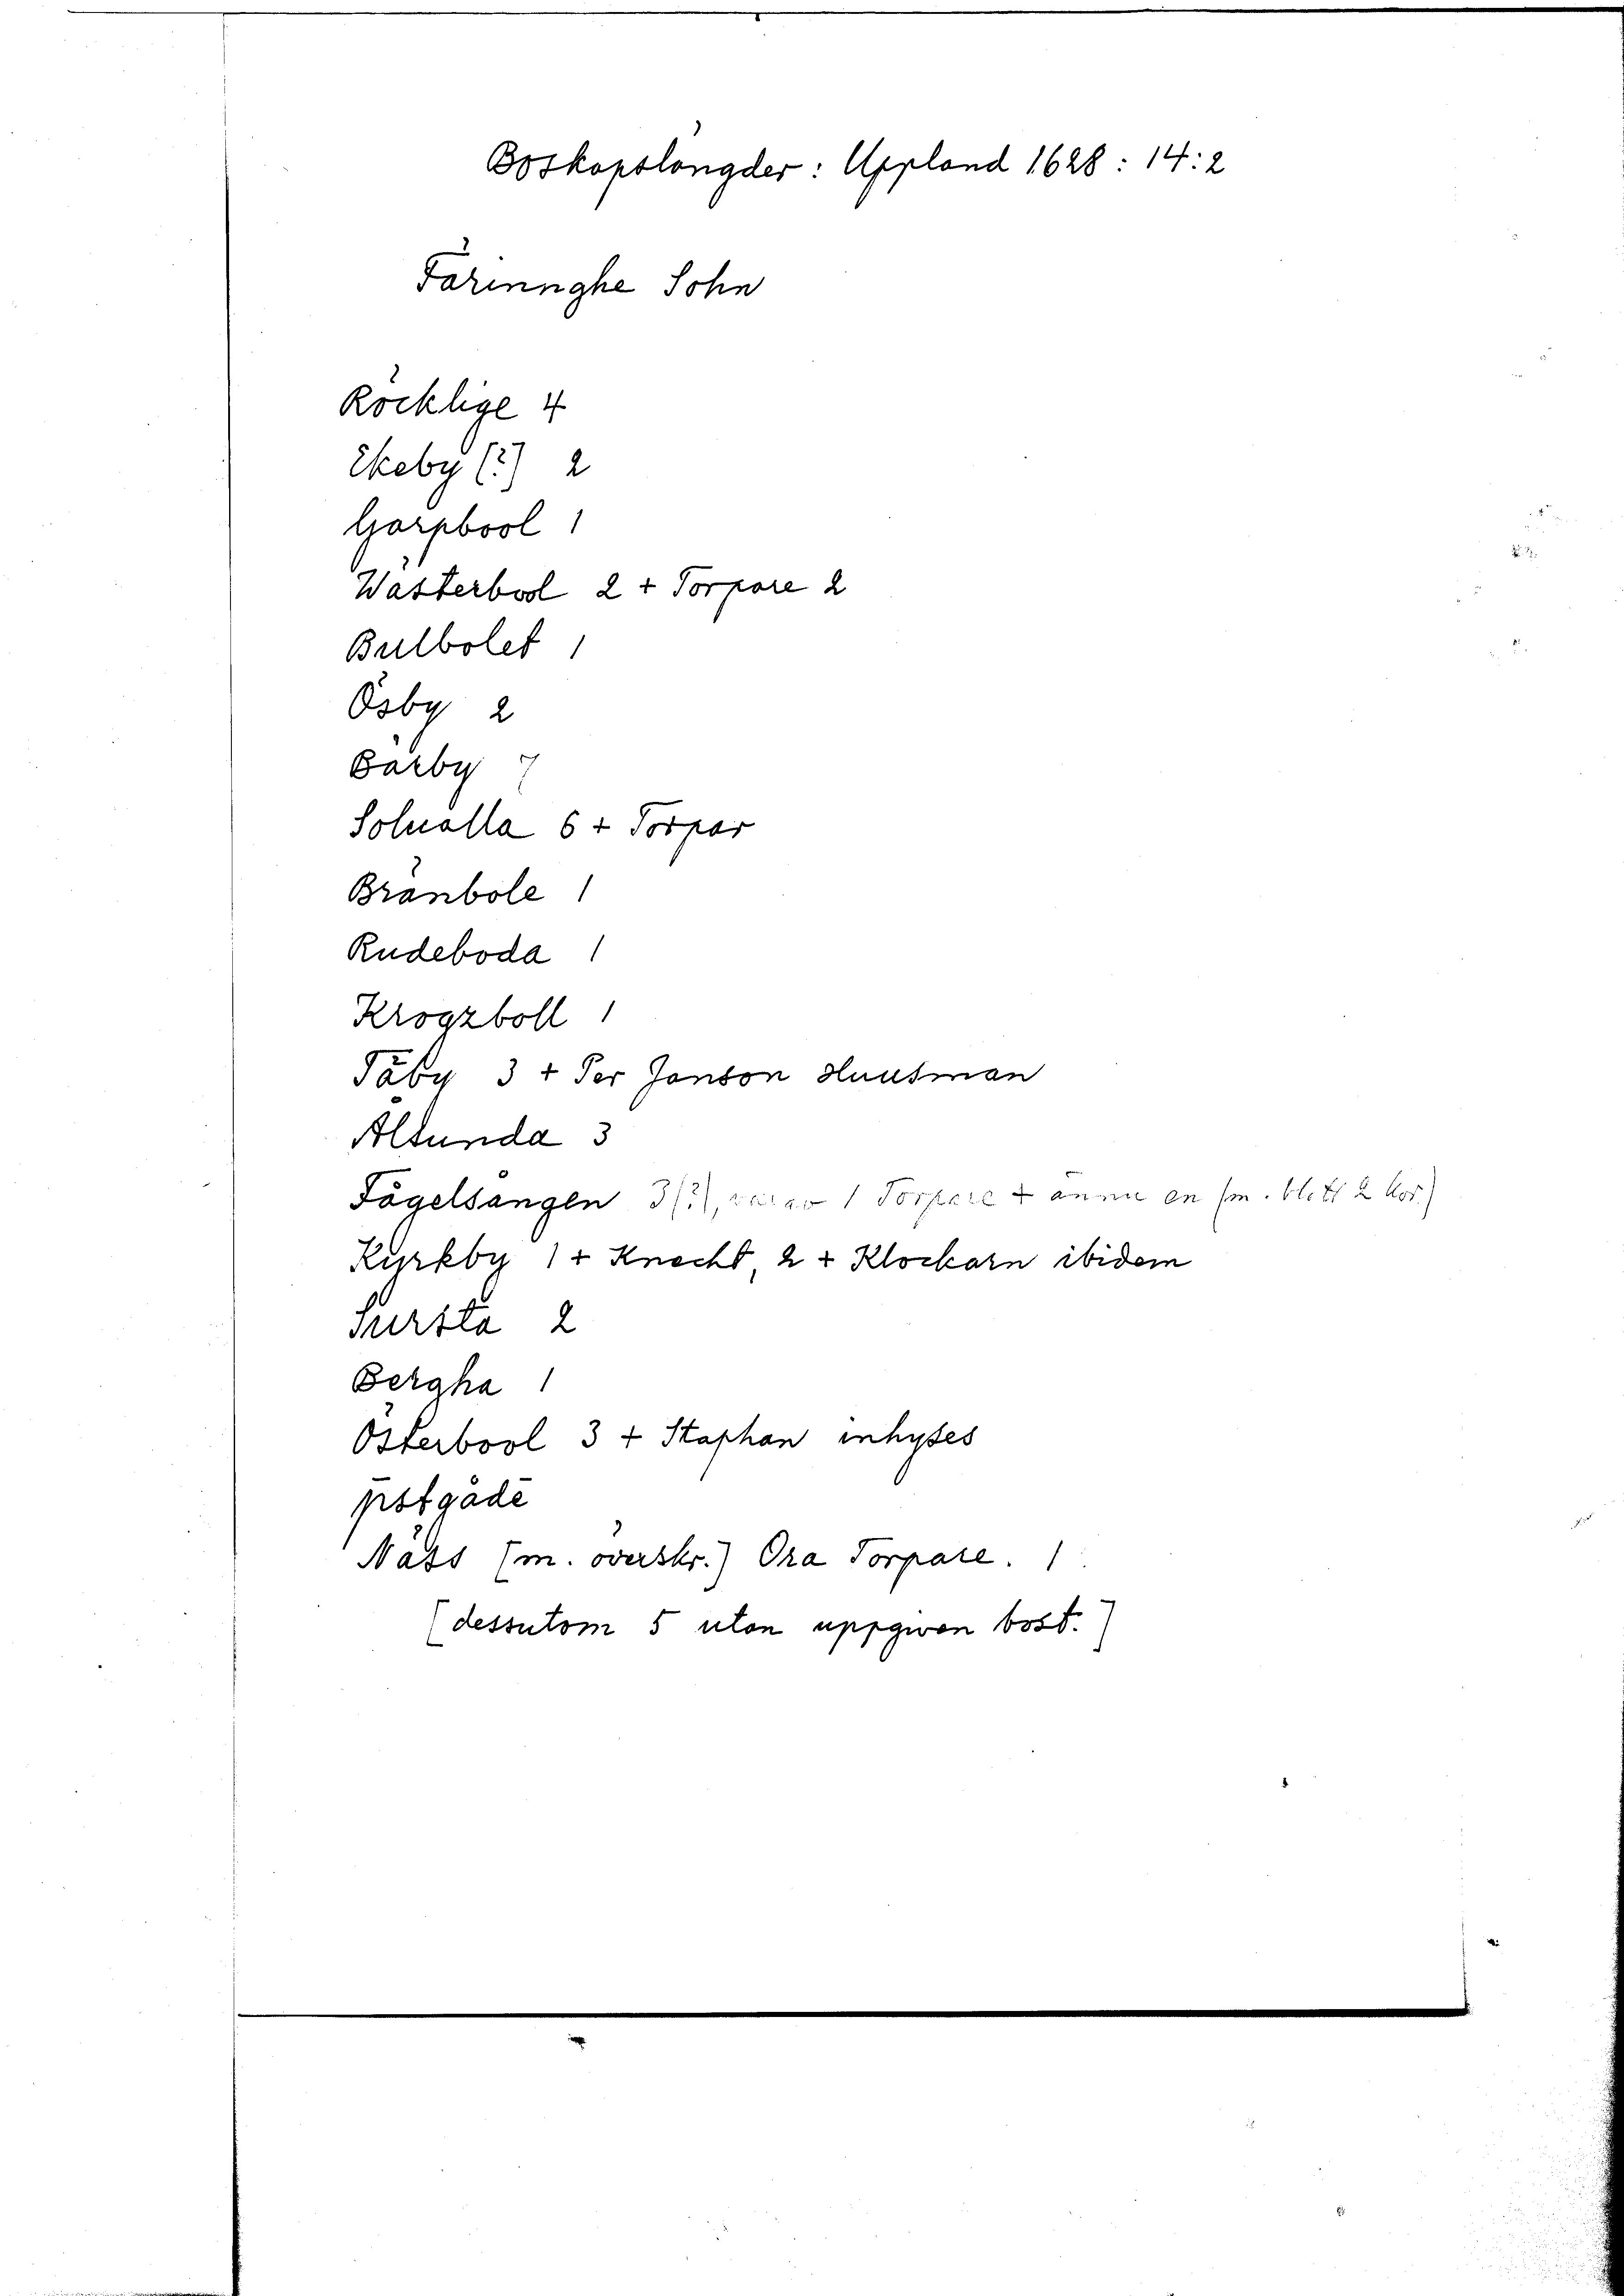 Boskapslängder: Uppland 1628: 14:2
Färinnghe Sohn
Röcklige 4
Ekeby (?) 2
Garpbool 1
Wästerbool 2 + Torpare 2
Bulbolet 1
Ösby 2
Bärby 7
Solualla 6 + Torpar
Bränbole 1
Rudeboda 1
Krogzboll 1
Täby 3 + Per Janson Huusman
Altunda 3
Fågelsången 3(?), varav 1 Torpare + ännu en (m. blott 2 kor)
Kyrkby 1 + Knecht, 2 + Klockarn ibidem
Sursta 2
Bergha 1
Österbool 3 + Staphan inhyses
pstgåde
Näss (m. överskr.) Öra Torpare. 1
(dessutom 5 utan uppgiven bost.)